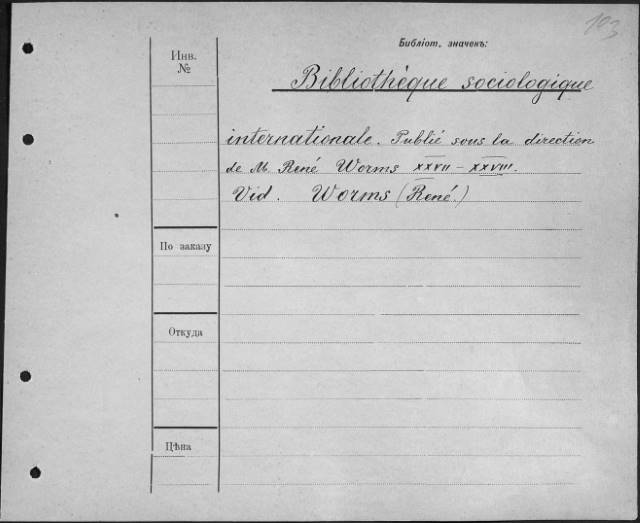 103
Библіот. значекъ:
Инв.
№
Bibliothèque sociologique
internationale. Publié sous la direction
de M. René Worms XXVII – XXVIII.
Vid. Worms (René.)
По заказу
Откуда
Цѣна